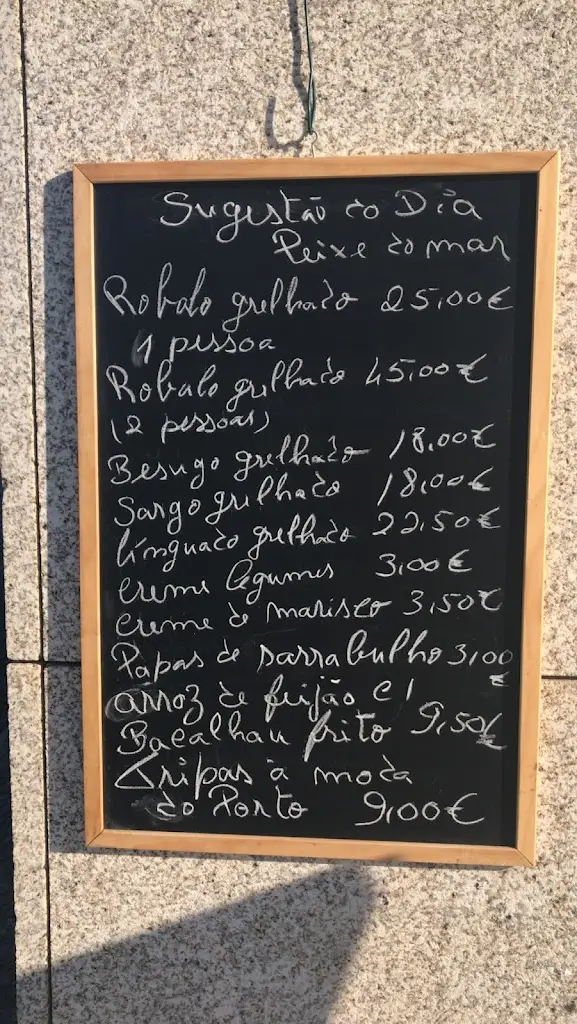 Sugestão do Dia
Peixe do mar
Robalo grelhado 25,00€
1 pessoa
Robalo grelhado 45,00€
(2 pessoas)
Besugo grelhado 18,00€
Sargo grelhado 18,00€
linguado grelhado 22,50€
creme legumes 3,00€
creme de marisco 3,50€
Papas de sarrabulho 3,00
€
arroz de feijão c/
Bacalhau frito 9,50€
Tripas à moda
do Porto 9,00€